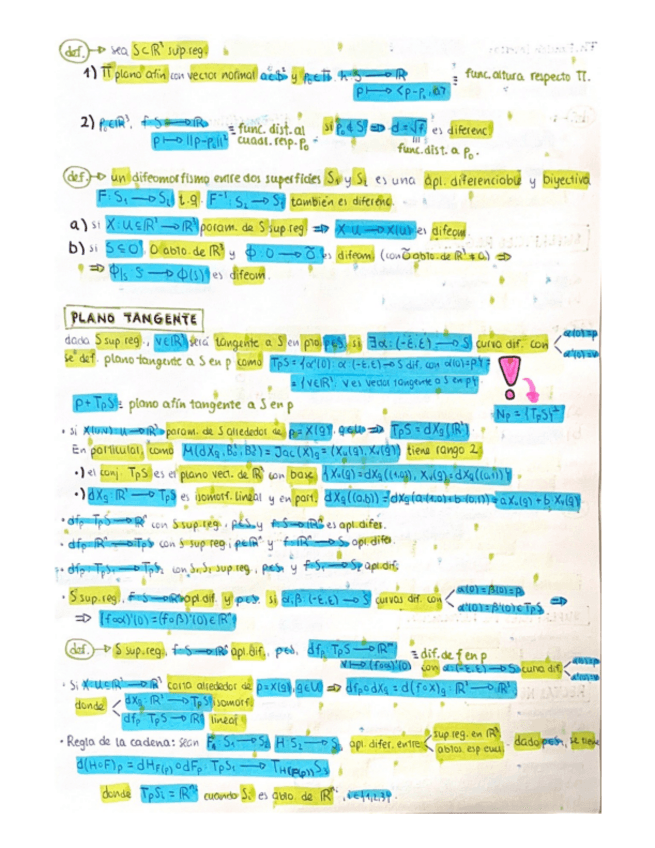 def. → sea S⊂ℝ³ sup.reg.
1) Π plano afín con vector normal a∈𝕊² y p₀∈Π. h: S → ℝ ≡ func. altura respecto Π.
p ↦ <p-p₀, a>
2) p₀∈ℝ³, f: S → ℝ ≡ func. dist. al si p₀∉S ⇒ d=√f es diferenc.
p ↦ ||p-p₀||² cuadr. resp. p₀ func. dist. a p₀.
def. → un difeomorfismo entre dos superficies S₁ y S₂ es una apl. diferenciable y biyectiva
F: S₁ → S₂ t.q. F⁻¹: S₂ → S₁ también es diferenc.
a) si X: U⊆ℝ² → ℝ³ param. de S sup.reg ⇒ X: U → X(U) es difeom.
b) si S⊆O, O abto. de ℝ³ y ϕ: O → Õ es difeom. (con Õ abto. de ℝ³) ⇒
⇒ ϕ|s: S → ϕ(S) es difeom.
PLANO TANGENTE
dada S sup.reg., v∈ℝ³ será tangente a S en p∈S si ∃α: (-ε,ε) → S curva dif. con α(0)=p
se def. plano tangente a S en p como TpS = {α'(0): α: (-ε,ε) → S dif. con α(0)=p} =
= {v∈ℝ³: v es vector tangente a S en p}
!
p + TpS ≡ plano afín tangente a S en p
Np = (TpS)⊥
• si X(u,v): U → ℝ³ param. de S alrededor de p=X(q), q∈U ⇒ TpS = dXq(ℝ²)
En particular, como M(dXq, B₀², B₀³) = Jac(X)q = (Xu(q), Xv(q)) tiene rango 2
•) el conj. TpS es el plano vect. de ℝ³ con base {Xu(q)=dXq((1,0)), Xv(q)=dXq((0,1))}
•) dXq: ℝ² → TpS es isomorf. lineal y en part. dXq((a,b)) = dXq(a(1,0)+b(0,1)) = aXu(q)+bXv(q)
• dfp: TpS → ℝⁿ con S sup.reg, p∈S y f: S → ℝⁿ es apl.difer.
• dfp: ℝⁿ → TpS con S sup.reg, p∈ℝⁿ y f: ℝⁿ → S apl.difer.
• dfp: TpS₁ → TpS₂ con S₁,S₂ sup.reg., p∈S₁ y f: S₁ → S₂ apl.dif.
• S sup.reg., f: S → ℝᵐ apl.dif. y p∈S. si α,β: (-ε,ε) → S curvas dif. con α(0)=β(0)=p ⇒
α'(0)=β'(0)∈TpS
⇒ (f∘α)'(0) = (f∘β)'(0)∈ℝᵐ
def. → S sup.reg., f: S → ℝᵐ apl.dif., p∈S, dfp: TpS → ℝᵐ ≡ dif. de f en p
v ↦ (f∘α)'(0) con α: (-ε,ε) → S curva dif.
• Si X: U⊆ℝ² → ℝ³ carta alrededor de p=X(q), q∈U ⇒ dfp∘dXq = d(f∘X)q: ℝ² → ℝᵐ,
donde dXq: ℝ² → TpS isomorf.
dfp: TpS → ℝᵐ lineal
• Regla de la cadena: sean F: S₁ → S₂, H: S₂ → S₃ apl. difer. entre sup.reg. en ℝ³ . dado p∈S₁, se tiene
abtos. esp. eucl.
d(H∘F)p = dH F(p) ∘ dFp: TpS₁ → T H(F(p)) S₃
donde TpSᵢ = ℝⁿⁱ cuando Sᵢ es abto. de ℝⁿⁱ, i∈{1,2,3}.